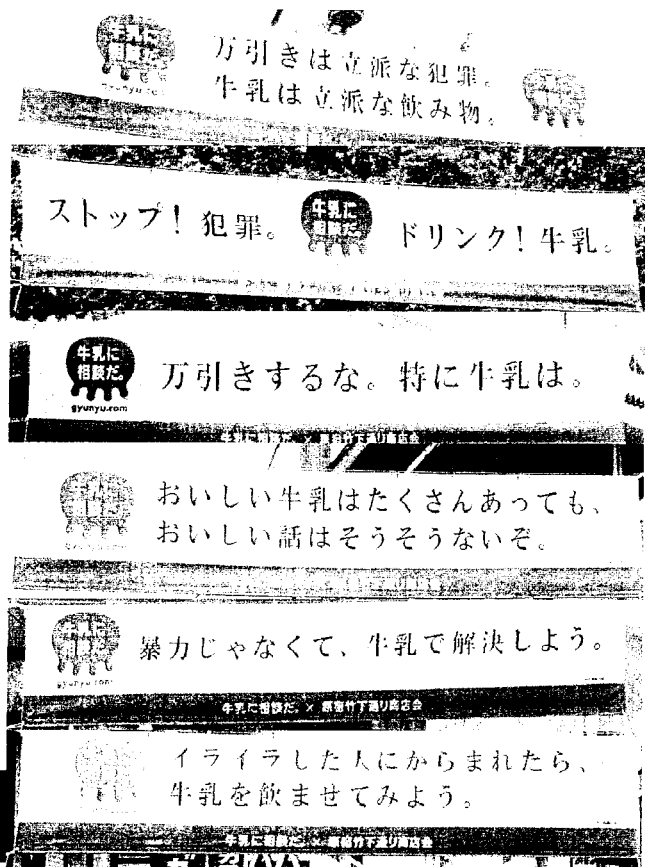 牛乳に
相談だ。
gyunyu.com
万引きは立派な犯罪。
牛乳は立派な飲み物。
ストップ!犯罪。
牛乳に
相談だ。
ドリンク!牛乳。
牛乳に
相談だ。
gyunyu.com
万引きするな。特に牛乳は。
牛乳に相談だ。× 原宿竹下通り商店会
おいしい牛乳はたくさんあっても、
おいしい話はそうそうないぞ。
牛乳に
相談だ。
gyunyu.com
暴力じゃなくて、牛乳で解決しよう。
牛乳に相談だ。× 原宿竹下通り商店会
イライラした人にからまれたら、
牛乳を飲ませてみよう。
牛乳に相談だ。× 原宿竹下通り商店会